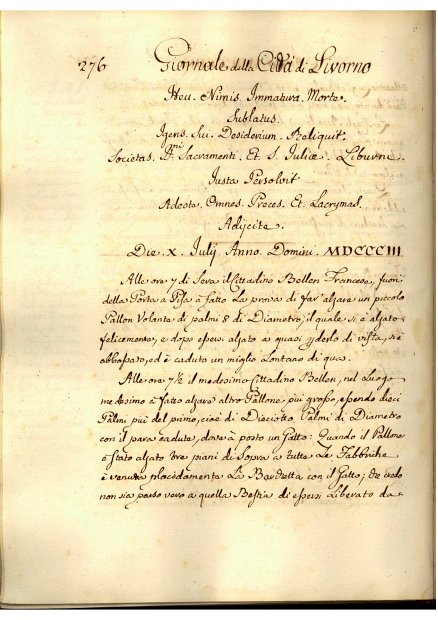 276 Giornale della Città di Livorno
Heu. Nimis. Immatura. Morte.
Sublatus.
Igens. Sui. Desiderium. Reliquit.
Societas. SSmi Sacramenti. Et. S. Juliæ. Liburni.
Justa Persolvit
Adeste. Omnes. Preces. Et. Lacrymas.
Adijcite.
Die. X. Julij. Anno. Domini. MDCCCIII
Alle ore 7 di Sera il Cittadino Bellen Francese, fuori
della Porta a Pisa à fatto la prova di far' alzare un piccolo
Pallon Volante di palmi 8 di Diametro, il quale si è alzato
felicemente, e dopo essersi alzato a quasi pderlo di vista, si è
abbassato, ed è caduto un miglio Lontano di qua.
Alle ore 7½ il medesimo Cittadino Bellen, nel Luogo
medesimo à fatto alzare altro Pallone piu grosso, essendo dieci
Palmi piu del primo, cioè di Dieciotto Palmi di Diametro
con il para cadute, dov'è à posto un Gatto: Quando il Pallone
è stato alzato tre piani di Sopra a tutte Le Fabbriche
è venuta placidamente La Barchetta con il Gatto; che credo
non sia parso vero a quella Bestia di essersi Liberato da